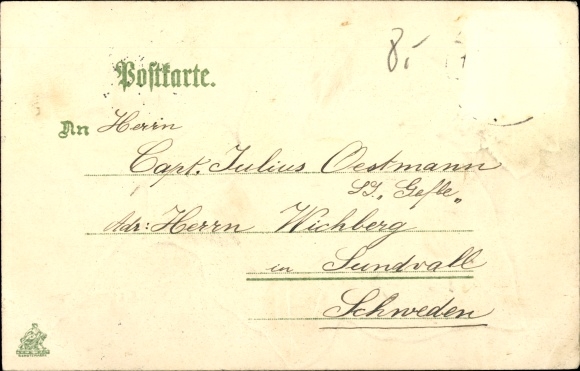 8,-
Postkarte.
An Herrn
Capt. Julius Oestmann
SS. „Gefle"
Adr: Herrn Wichberg
in Sundvall
Schweden